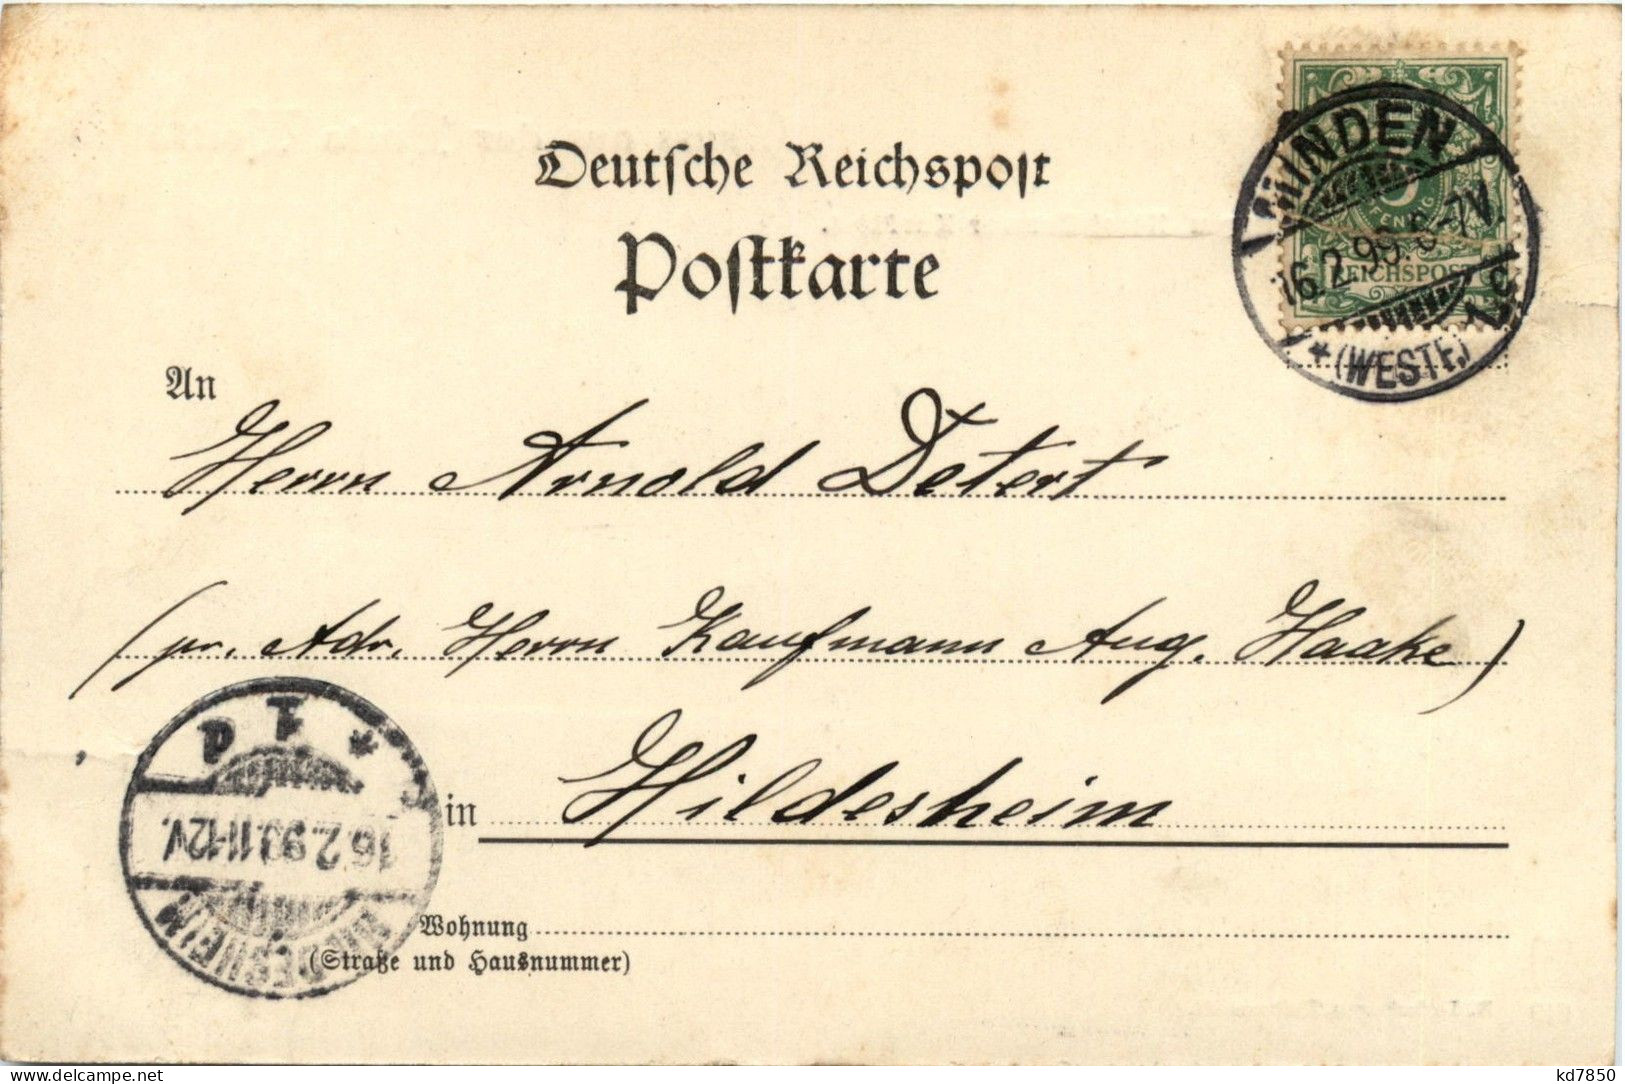 Deutsche Reichspost
Postkarte
MINDEN
16.2.99.6-7V.
PFENNIG
REICHSPOST
* (WESTF.) 1c
An
Herrn Arnold Detert
(pr. Adr. Herrn Kaufmann Aug. Haake)
in Hildesheim
HILDESHEIM
11-12V.
Wohnung
(Straße und Hausnummer)
delcampe.net
kd7850